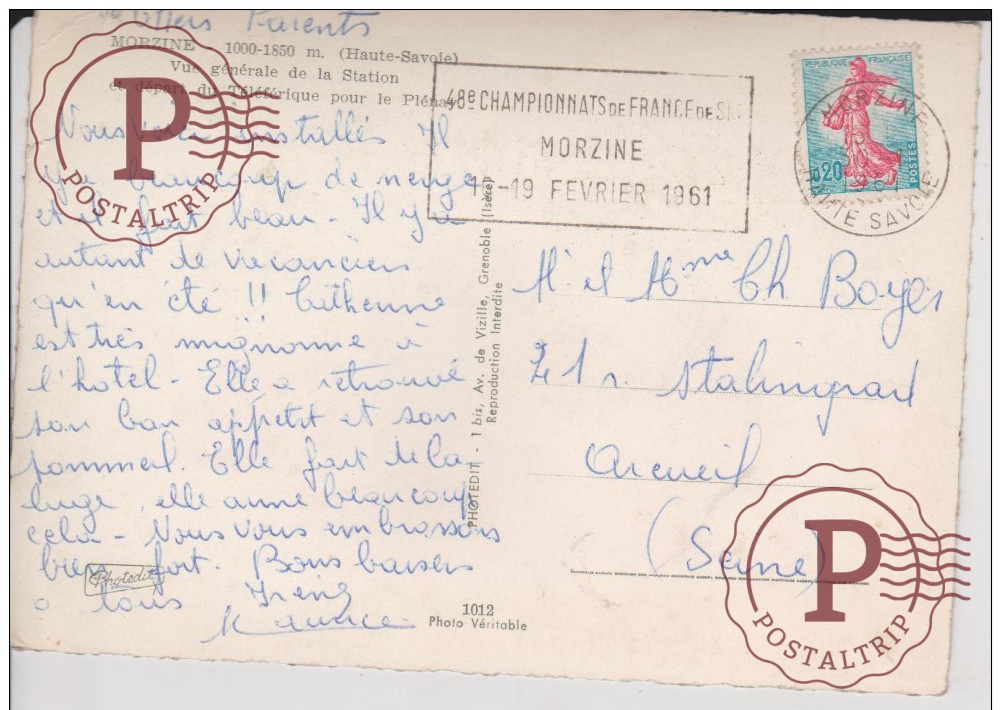 Chers Parents
MORZINE 1000-1850 m. (Haute-Savoie)
Vue générale de la Station
et départ du Téléférique pour le Plénay
Nous voici installés Il
y a beaucoup de neige
et il fait beau - Il y a
autant de vacanciers
qu'en été !! Catherine
est très mignonne à
l'hotel - Elle a retrouvé
son bon appétit et son
sommeil. Elle fait de la
luge, elle aime beaucoup
cela - Nous vous embrassons
bien fort. Bons baisers
à tous Irène
Maurice
Photedit
PHOTEDIT - 1 bis, Av. de Vizille, Grenoble (Isère)
Reproduction Interdite
1012
Photo Véritable
48e CHAMPIONNATS DE FRANCE DE
MORZINE
-19 FEVRIER 1961
REPUBLIQUE FRANÇAISE
0,20
POSTES
MORZINE
HTE SAVOIE
M. et Mme Ch Boyer
21 r. Stalingrad
Arcueil
(Seine)
P
POSTALTRIP
P
POSTALTRIP